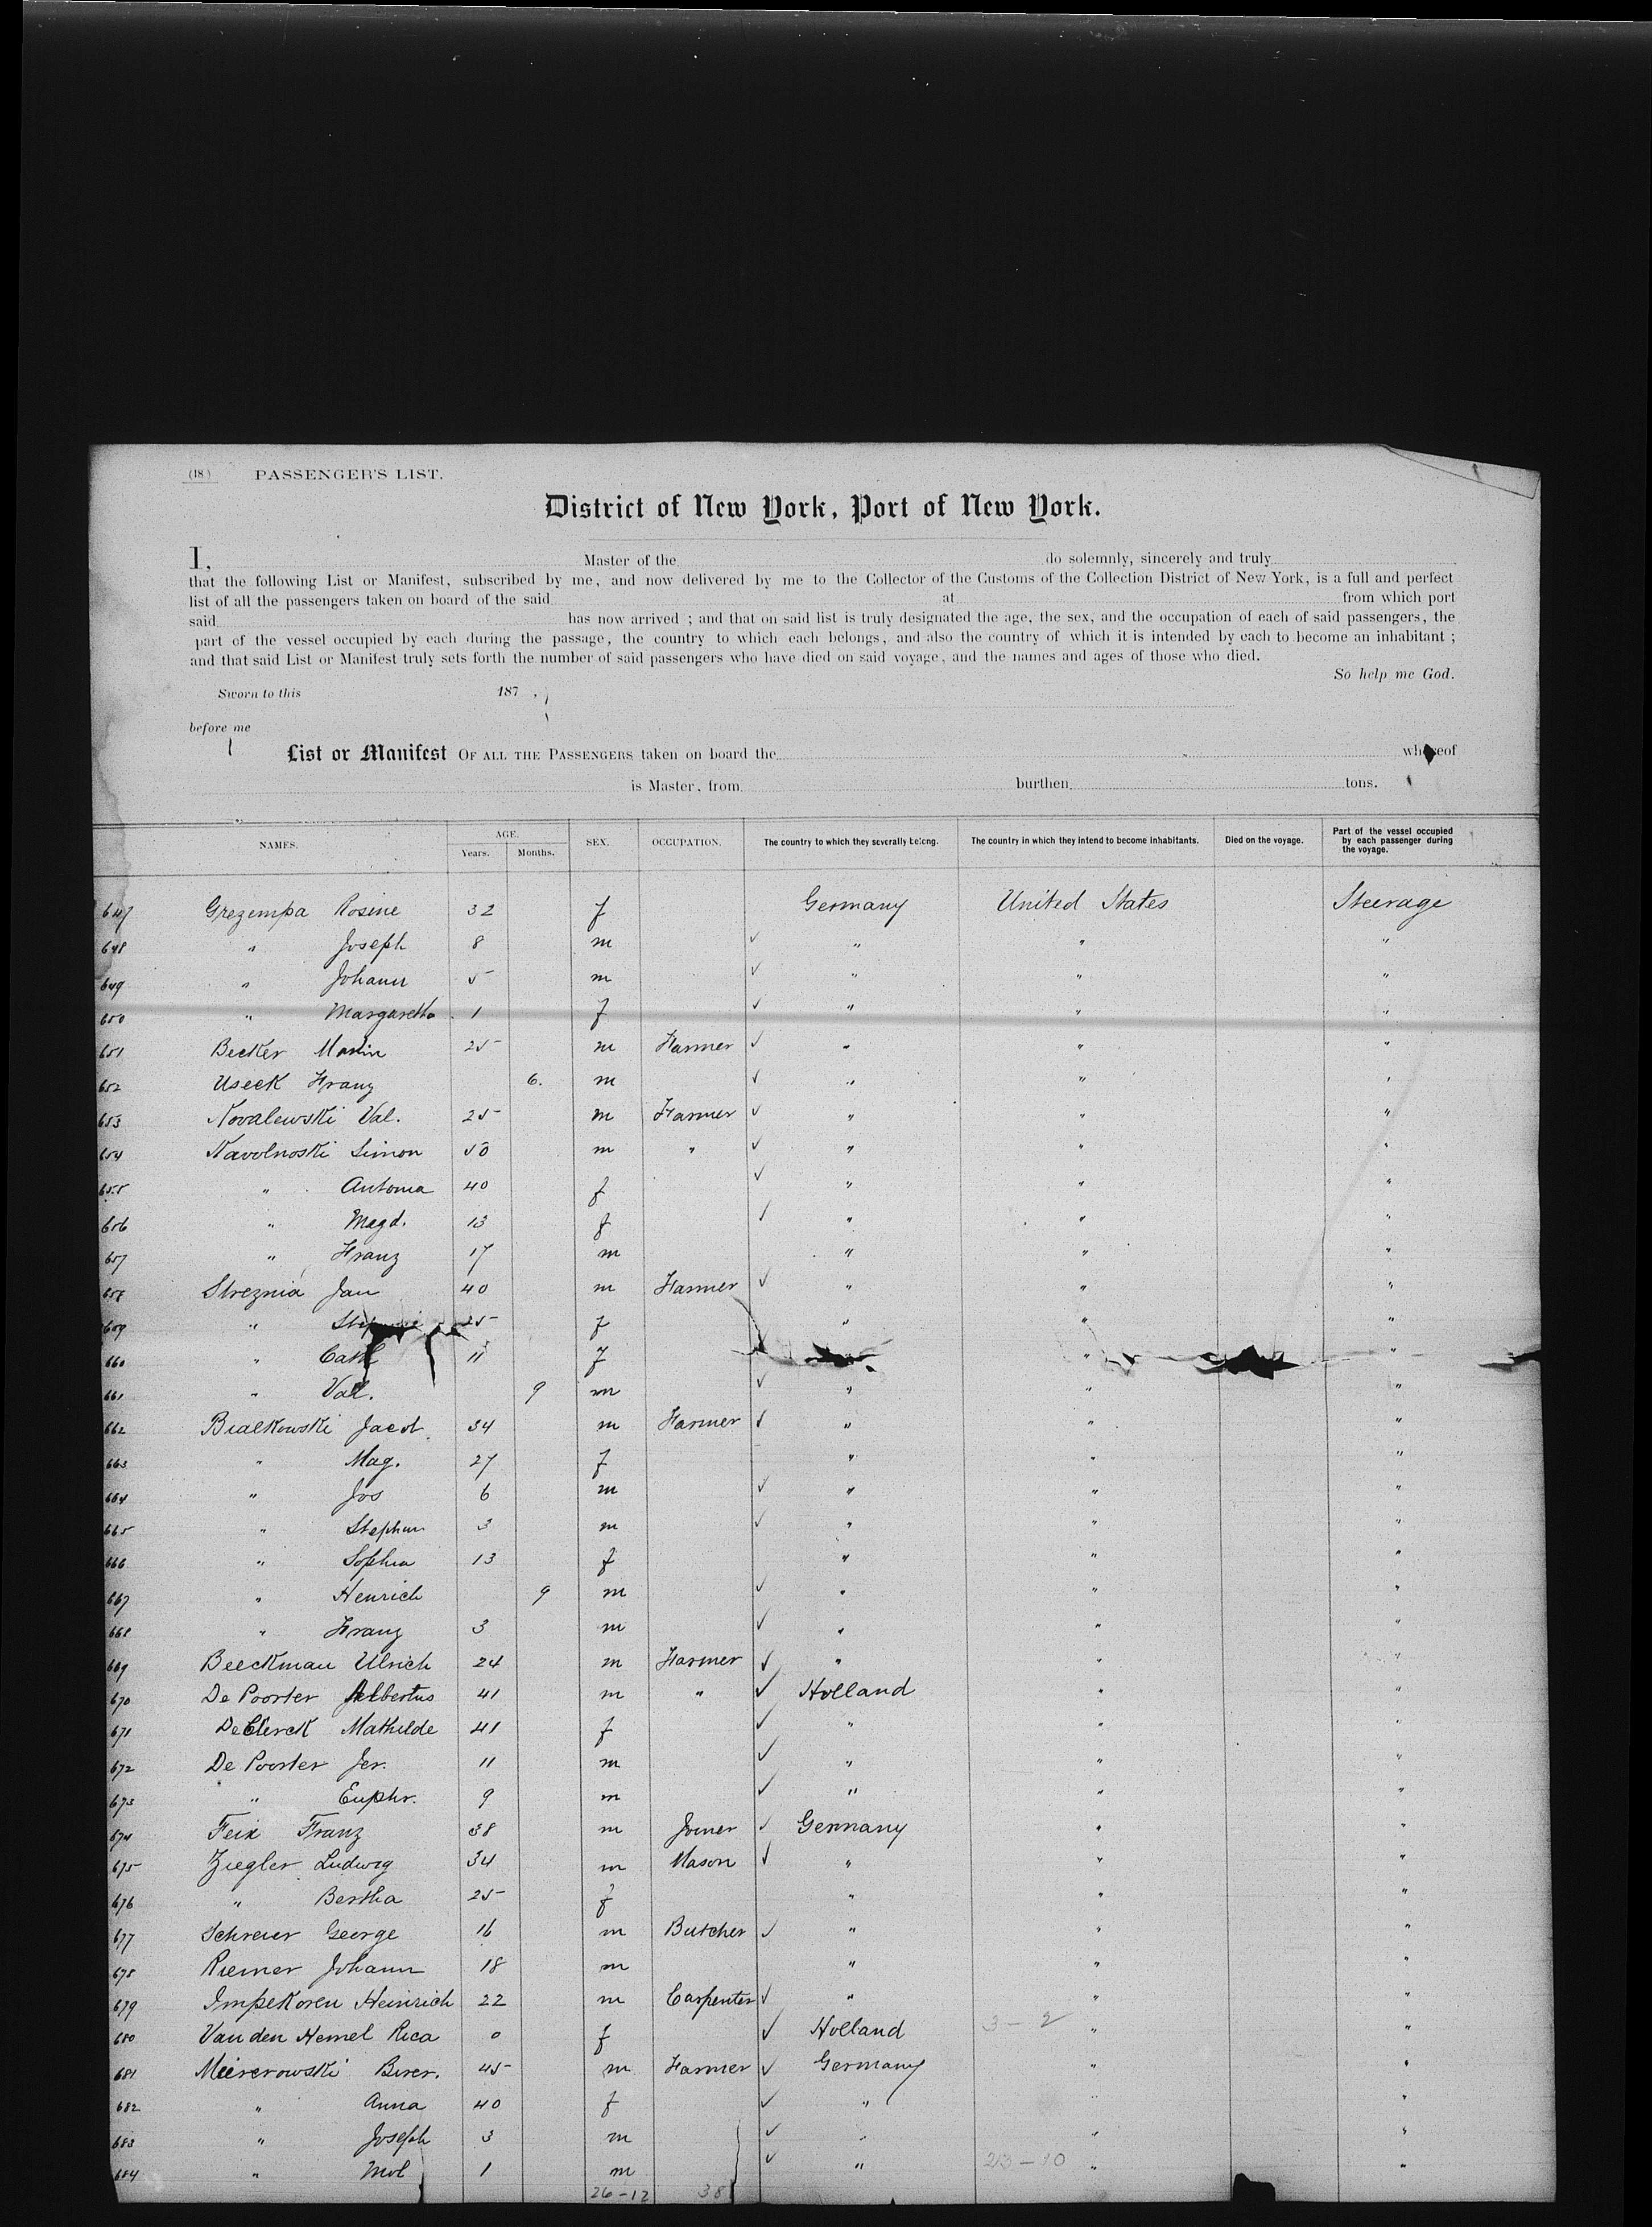 (18) PASSENGER'S LIST.
District of New York, Port of New York.
I, Master of the do solemnly, sincerely and truly
that the following List or Manifest, subscribed by me, and now delivered by me to the Collector of the Customs of the Collection District of New York, is a full and perfect
list of all the passengers taken on board of the said at from which port
said has now arrived ; and that on said list is truly designated the age, the sex, and the occupation of each of said passengers, the
part of the vessel occupied by each during the passage, the country to which each belongs, and also the country of which it is intended by each to become an inhabitant ;
and that said List or Manifest truly sets forth the number of said passengers who have died on said voyage, and the names and ages of those who died.
So help me God.
Sworn to this 187 ,
before me
List or Manifest OF ALL THE PASSENGERS taken on board the whereof
is Master, from burthen tons.
NAMES. AGE. Years. Months. SEX. OCCUPATION. The country to which they severally belong. The country in which they intend to become inhabitants. Died on the voyage. Part of the vessel occupied by each passenger during the voyage.
647 Grezempa Rosine 32 f Germany United States Steerage
648 " Joseph 8 m ✓ " " "
649 " Johann 5 m ✓ " " "
650 " Margaretha 1 f ✓ " " "
651 Becker Martin 25 m Farmer ✓ " " "
652 Useck Franz 6. m ✓ " " "
653 Kovalewski Val. 25 m Farmer ✓ " " "
654 Navolnoski Simon 50 m " ✓ " " "
655 " Antonia 40 f ✓ " " "
656 " Magd. 13 f ✓ " " "
657 " Franz 17 m " " "
658 Streznia Jan 40 m Farmer ✓ " " "
659 " 25 f " " "
660 " Cath 11 f " "
661 " Val. 9 m ✓ " " "
662 Bialkowski Jacob 34 m Farmer ✓ " " "
663 " Mag. 27 f " " "
664 " Jos 6 m ✓ " " "
665 " Stephan 3 m ✓ " " "
666 " Sophia 13 f " " "
667 " Henrich 9 m ✓ " " "
668 " Franz 3 m ✓ " " "
669 Beeckman Ulrich 24 m Farmer ✓ " " "
670 De Poorter Albertus 41 m " ✓ Holland " "
671 DeClerck Mathilde 41 f ✓ " " "
672 De Poorter Jer. 11 m ✓ " " "
673 " Euphr. 9 m ✓ " " "
674 Feix Franz 38 m Joiner ✓ Germany " "
675 Ziegler Ludwig 34 m Mason ✓ " " "
676 " Bertha 25 f " " "
677 Schreier George 16 m Butcher ✓ " " "
678 Riemer Johann 18 m " " "
679 Impekoven Heinrich 22 m Carpenter ✓ " " "
680 Van den Hemel Rica 0 f ✓ Holland 3 - 2 " "
681 Meirerowski 45 m Farmer ✓ Germany " "
682 " Anna 40 f ✓ " " "
683 " Joseph 3 m ✓ " " "
684 " Mol 1 m ✓ " 23 - 10 " "
26 - 12 38